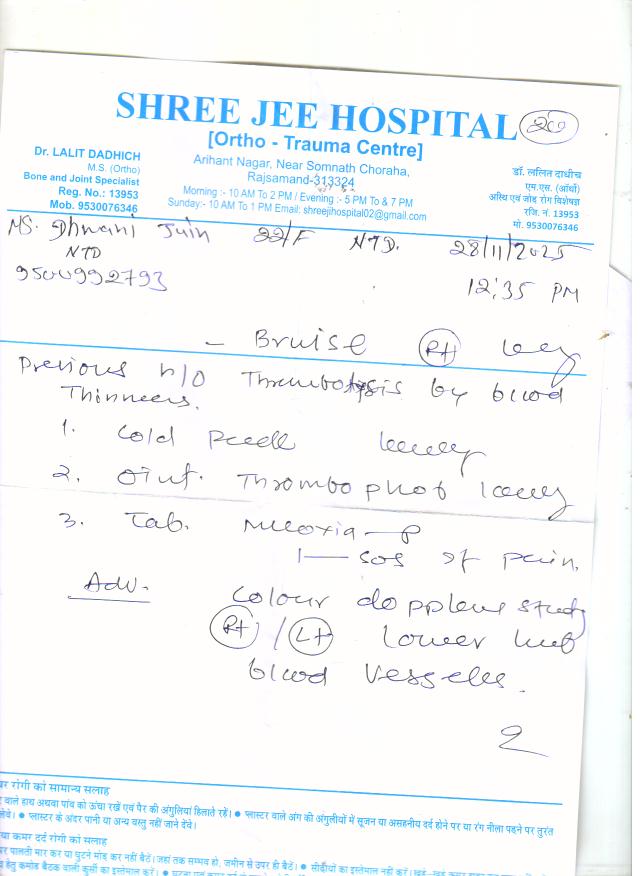 SHREE JEE HOSPITAL
20
[Ortho - Trauma Centre]
Dr. LALIT DADHICH
M.S. (Ortho)
Bone and Joint Specialist
Reg. No.: 13953
Mob. 9530076346
Arihant Nagar, Near Somnath Choraha,
Rajsamand-313324
Morning :- 10 AM To 2 PM / Evening :- 5 PM To & 7 PM
Sunday:- 10 AM To 1 PM Email: shreejihospital02@gmail.com
डॉ. ललित दाधीच
एम.एस. (ऑर्थो)
अस्थि एवं जोड़ रोग विशेषज्ञ
रजि. नं. 13953
मो. 9530076346
Ms. Dhwani Jain 22/F NTD. 28/11/2025
NTD
9500992793
12:35 PM
- Bruise Rt leg
Previous h/o Thrombolysis by blood
Thinners.
1. Cold pack
2. Oint. Thrombophob
3. Tab.
1 — sos if pain.
Adv. Colour doppler study
Rt / Lt lower limb
blood vessels.
रोगी को सामान्य सलाह
वाले हाथ अथवा पांव को ऊंचा रखें एवं पैर की अंगुलियां हिलाते रहें। ● प्लास्टर वाले अंग की अंगुलीयों में सूजन या असहनीय दर्द होने पर या रंग नीला पड़ने पर तुरंत
● प्लास्टर के अंदर पानी या अन्य वस्तु नहीं जाने देंवे।
या कमर दर्द रोगी को सलाह
पालती मार कर या घुटने मोड़ कर नहीं बैठें। जहां तक सम्भव हो, जमीन से उपर ही बैठें। ● सीढ़ीयों का इस्तेमाल नहीं करें।
हेतु कमोड बैठक वाली कुर्सी का इस्तेमाल करें।